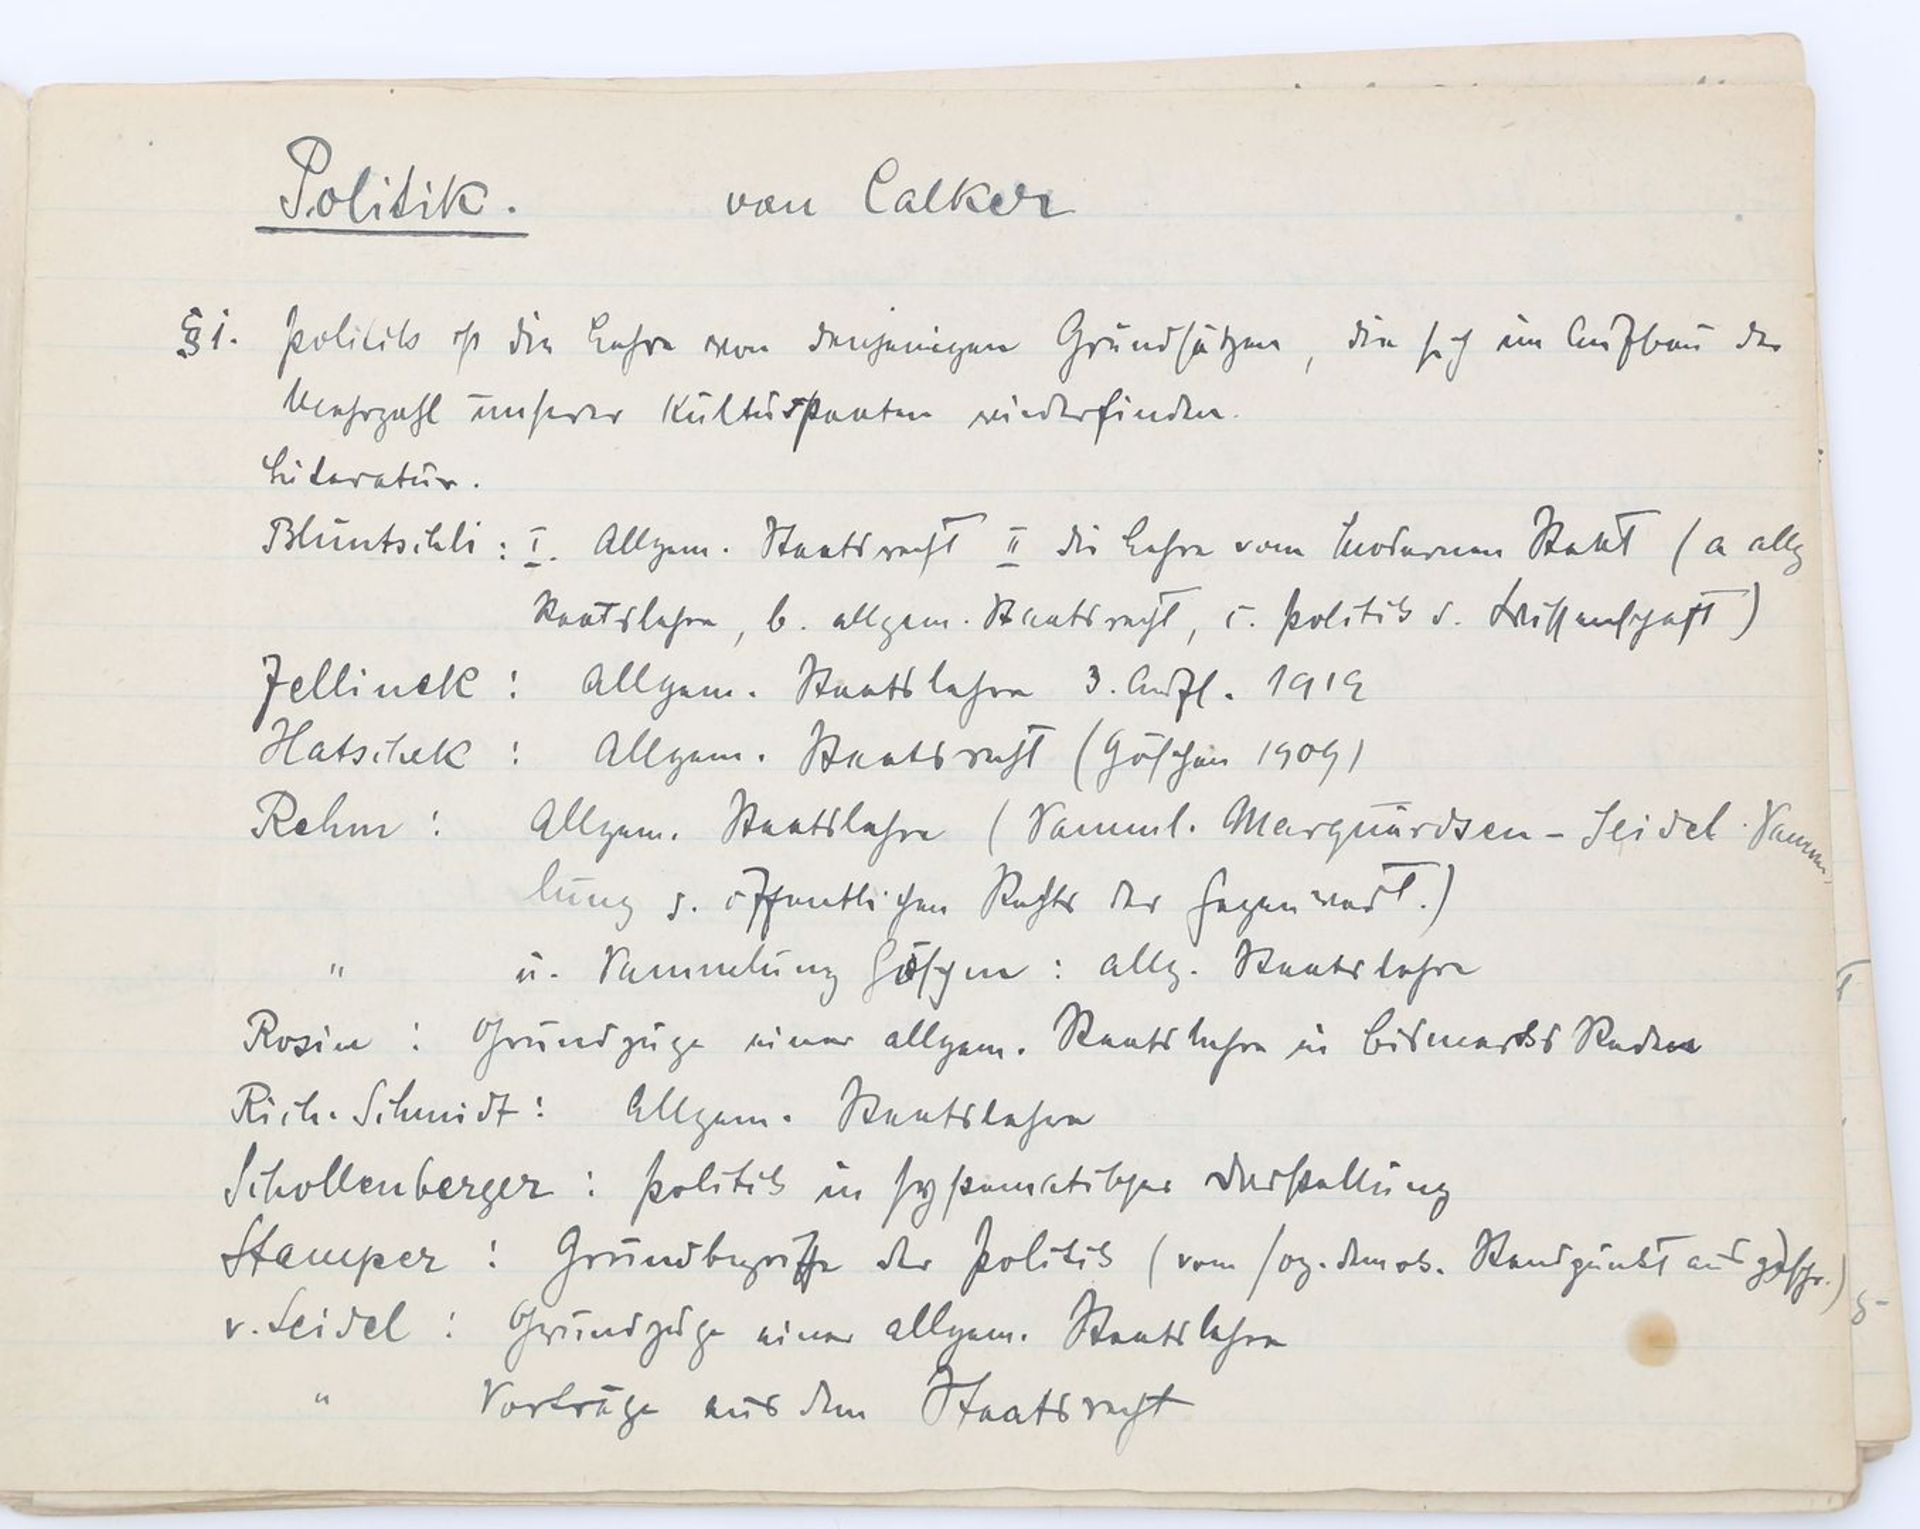 Politik. van Calker
§ 1. Politik ist die Lehre von denjenigen Grundsätzen, die sich im Aufbau der
Mehrzahl unserer Kulturstaaten wiederfinden.
Literatur.
Bluntschli: I. Allgem. Staatsrecht II die Lehre vom modernen Staat (a allg
Staatslehre, b. allgem. Staatsrecht, c. Politik d. Wissenschaft)
Jellinek: Allgem. Staatslehre 3. Aufl. 1919
Hatschek: Allgem. Staatsrecht (Göschen 1909)
Rehm: Allgem. Staatslehre (Samml. Marquardsen-Seidel Samm-
lung d. öffentlichen Rechts der Gegenwart.)
" u. Sammlung Göschen: allg. Staatslehre
Rosin: Grundzüge einer allgem. Staatslehre in Bismarcks Reden
Rich. Schmidt: Allgem. Staatslehre
Schollenberger: Politik in systematischer Darstellung
Stamper: Grundbegriffe der Politik (vom soz. demok. Standpunkt aus geschr.)
v. Seidel: Grundzüge einer allgem. Staatslehre
" Vorträge aus dem Staatsrecht